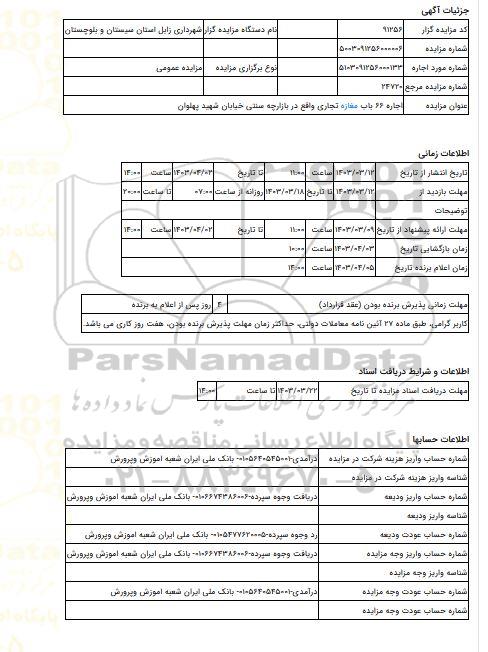 جزئیات آگهی
کد مزایده گزار ۹۱۲۵۶ نام دستگاه مزایده گزار شهرداری زابل استان سیستان و بلوچستان
شماره مزایده ۵۰۰۳۰۹۱۲۵۶۰۰۰۰۰۶
شماره مورد اجاره ۵۱۰۳۰۹۱۲۵۶۰۰۰۱۳۳ نوع برگزاری مزایده مزایده عمومی
شماره مزایده مرجع ۲۴۷۲۰
عنوان مزایده اجاره ۶۶ باب مغازه تجاری واقع در بازارچه سنتی خیابان شهید پهلوان
اطلاعات زمانی
تاریخ انتشار از تاریخ ۱۴۰۳/۰۳/۱۲ ساعت ۱۱:۰۰ تا تاریخ ۱۴۰۳/۰۴/۰۲ ساعت ۱۴:۰۰
مهلت بازدید از ۱۴۰۳/۰۳/۱۲ تا تاریخ ۱۴۰۳/۰۳/۱۸ روزانه از ساعت ۰۷:۰۰ تا ساعت ۲۰:۰۰
توضیحات
مهلت ارائه پیشنهاد از تاریخ ۱۴۰۳/۰۳/۰۹ ساعت ۱۱:۰۰ تا تاریخ ۱۴۰۳/۰۴/۰۲ ساعت ۱۴:۰۰
زمان بازگشایی تاریخ ۱۴۰۳/۰۴/۰۳ ساعت ۱۰:۰۰
زمان اعلام برنده تاریخ ۱۴۰۳/۰۴/۰۵ ساعت ۱۴:۰۰
مهلت زمانی پذیرش برنده بودن (عقد قرارداد) ۴ روز پس از اعلام به برنده
کاربر گرامی، طبق ماده ۲۷ آئین نامه معاملات دولتی، حداکثر زمان مهلت پذیرش برنده بودن، هفت روز کاری می باشد.
ParsNamadData
اطلاعات و شرایط دریافت اسناد
مهلت دریافت اسناد مزایده تا تاریخ ۱۴۰۳/۰۳/۲۲ تا ساعت ۱۴:۰۰
مرکز فرآوری اطلاعات پارس نماد داده ها
پایگاه اطلاع رسانی مناقصه و مزایده
اطلاعات حسابها
شماره حساب واریز هزینه شرکت در مزایده درآمدی-۰۱۰۵۶۴۰۵۴۵۰۰۱- بانک ملی ایران شعبه اموزش وپرورش
شناسه واریز هزینه شرکت در مزایده
۰۲۱-۸۸۳۴۹۶۷۰-۵
شماره حساب واریز ودیعه دریافت وجوه سپرده-۰۱۰۶۶۷۴۳۸۶۰۰۶- بانک ملی ایران شعبه اموزش وپرورش
شناسه واریز ودیعه
شماره حساب عودت ودیعه رد وجوه سپرده-۰۱۰۵۴۷۷۶۲۰۰۰۵- بانک ملی ایران شعبه اموزش وپرورش
شماره حساب واریز وجه مزایده دریافت وجوه سپرده-۰۱۰۶۶۷۴۳۸۶۰۰۶- بانک ملی ایران شعبه اموزش وپرورش
شناسه واریز وجه مزایده
شماره حساب عودت وجه مزایده درآمدی-۰۱۰۵۶۴۰۵۴۵۰۰۱- بانک ملی ایران شعبه اموزش وپرورش
شماره حساب عودت وجه مزایده